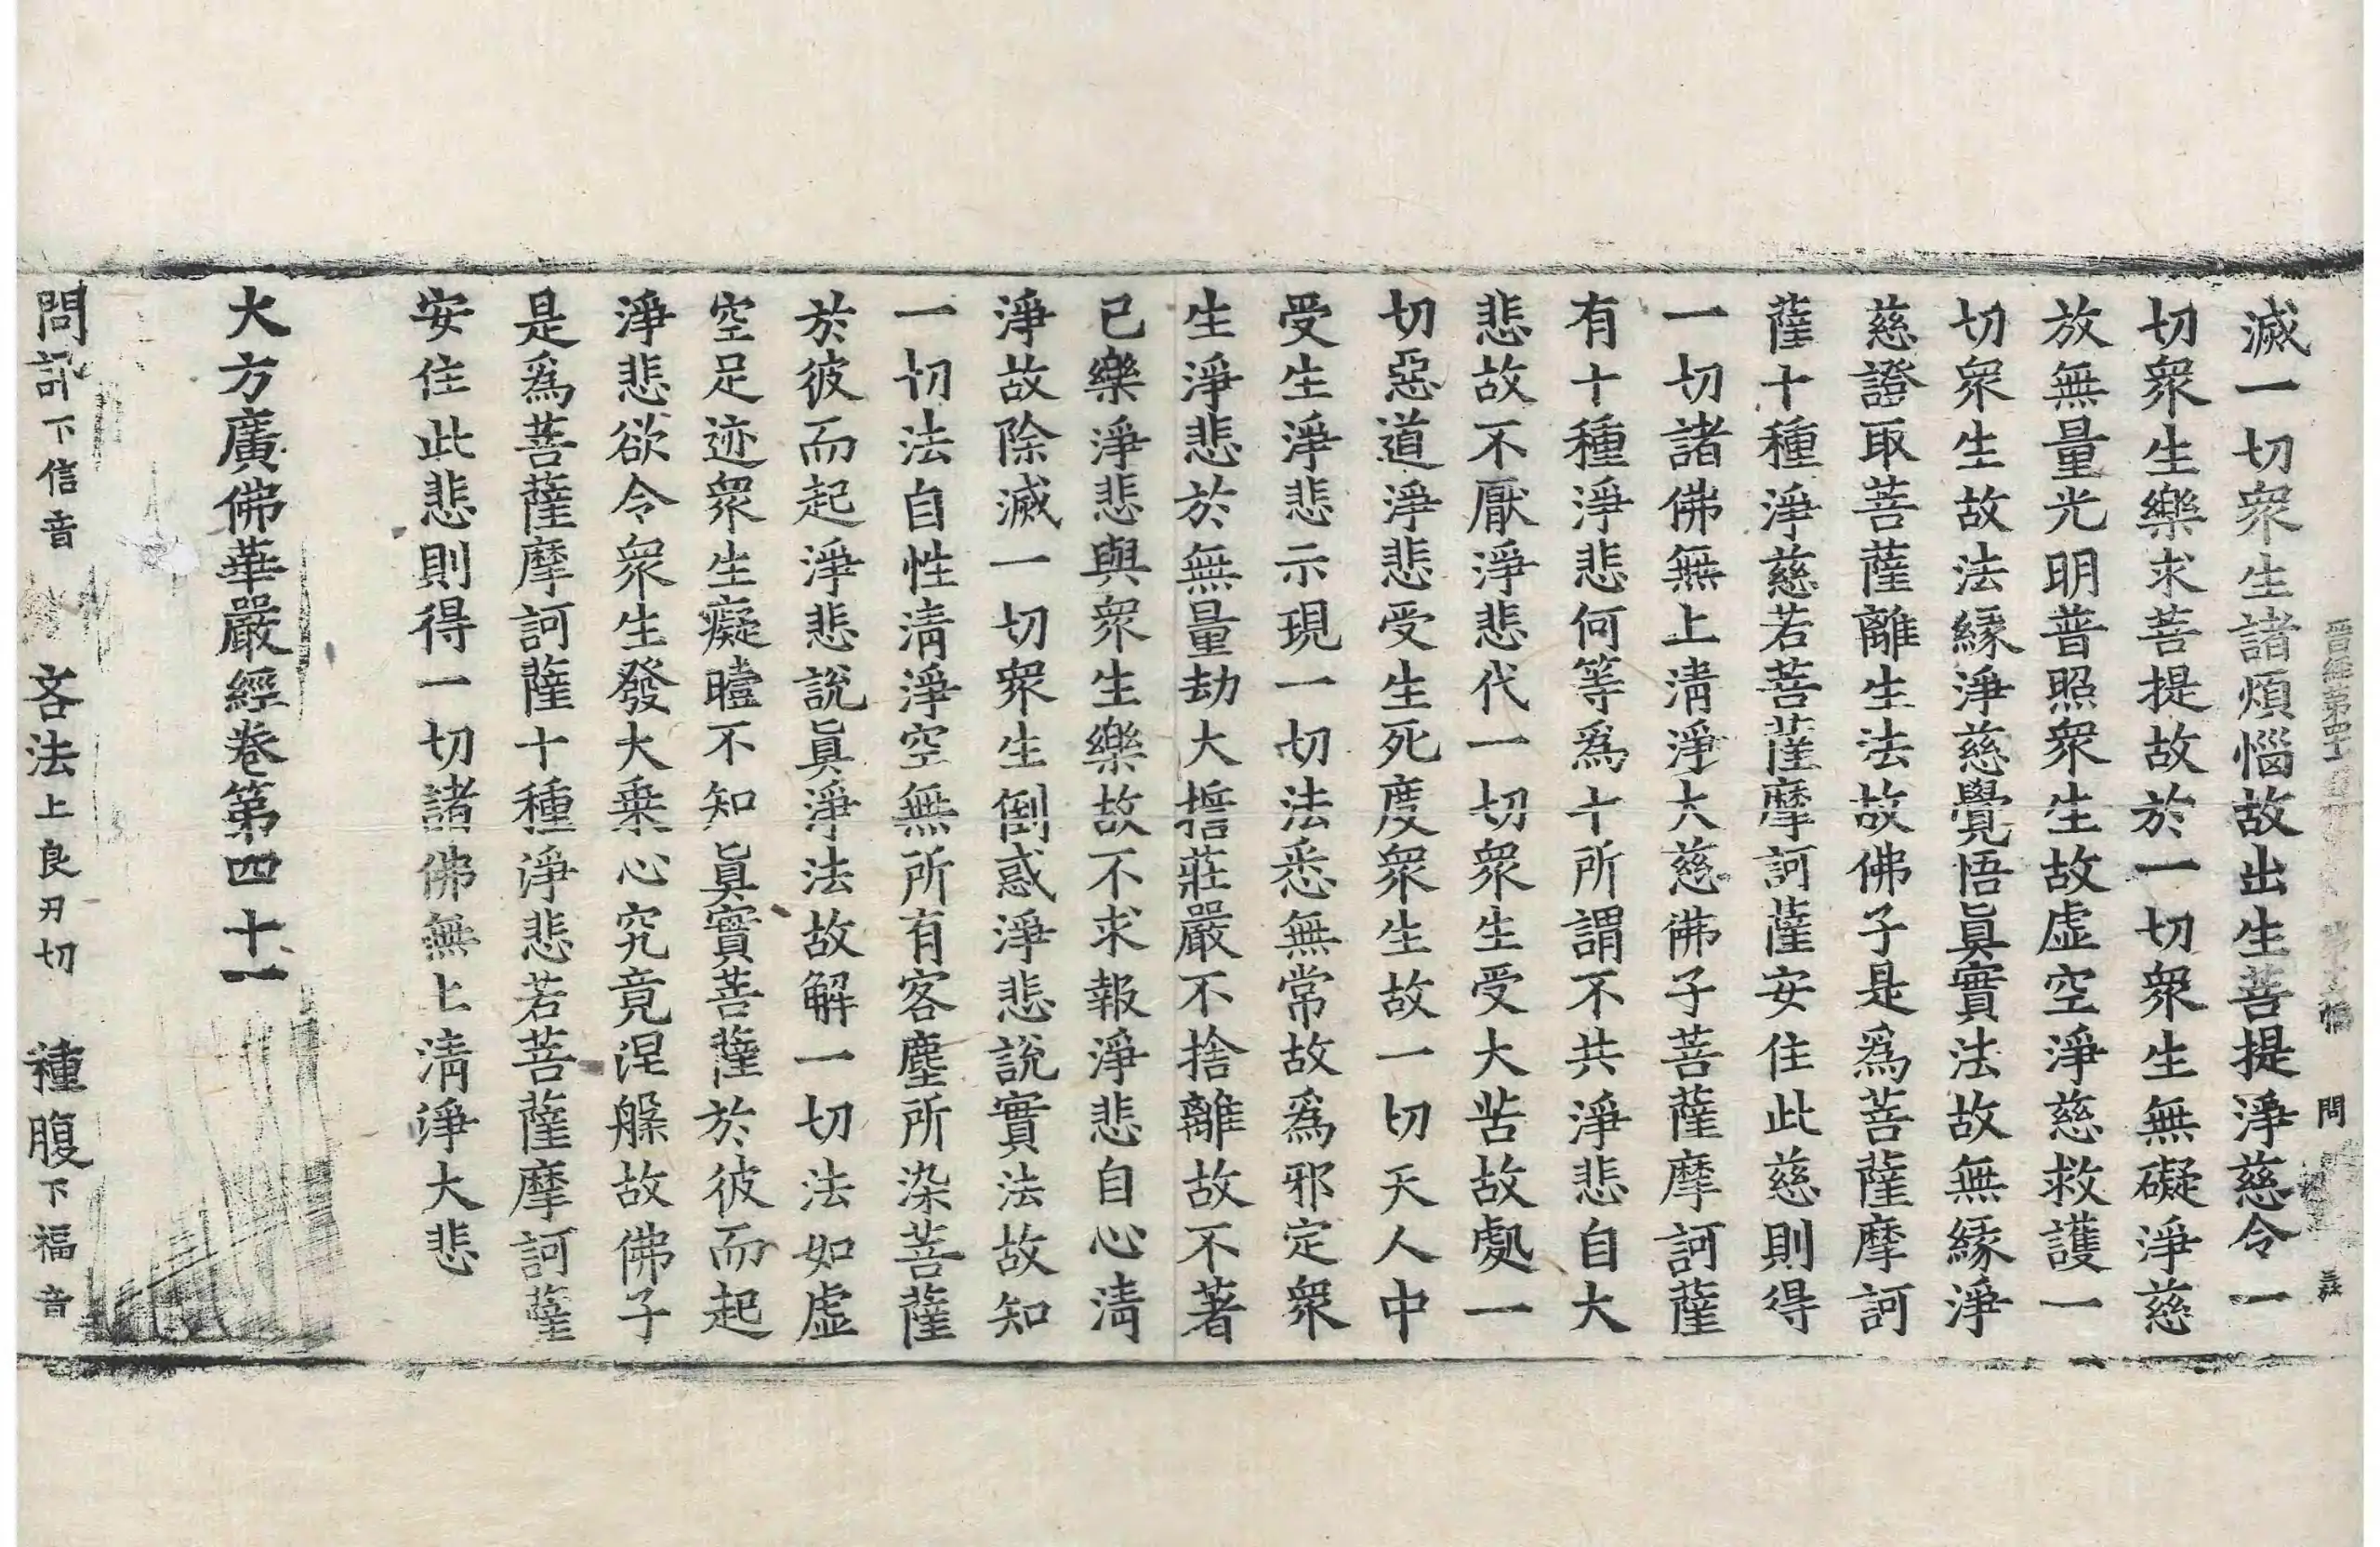 晉經第四十一
問
滅一切衆生諸煩惱故出生菩提淨慈令一
切衆生樂求菩提故於一切衆生無礙淨慈
放無量光明普照衆生故虛空淨慈救護一
切衆生故法緣淨慈覺悟眞實法故無緣淨
慈證取菩薩離生法故佛子是爲菩薩摩訶
薩十種淨慈若菩薩摩訶薩安住此慈則得
一切諸佛無上清淨大慈佛子菩薩摩訶薩
有十種淨悲何等爲十所謂不共淨悲自大
悲故不厭淨悲代一切衆生受大苦故處一
切惡道淨悲受生死度衆生故一切天人中
受生淨悲示現一切法悉無常故爲邪定衆
生淨悲於無量劫大誓莊嚴不捨離故不著
已樂淨悲與衆生樂故不求報淨悲自心清
淨故除滅一切衆生倒惑淨悲說實法故知
一切法自性清淨空無所有客塵所染菩薩
於彼而起淨悲說眞淨法故解一切法如虛
空足迹衆生癡曀不知眞實菩薩於彼而起
淨悲欲令衆生發大乘心究竟涅槃故佛子
是爲菩薩摩訶薩十種淨悲若菩薩摩訶薩
安住此悲則得一切諸佛無上清淨大悲
大方廣佛華嚴經卷第四十一
問訊下信音 吝法上良刃切 種腹下福音